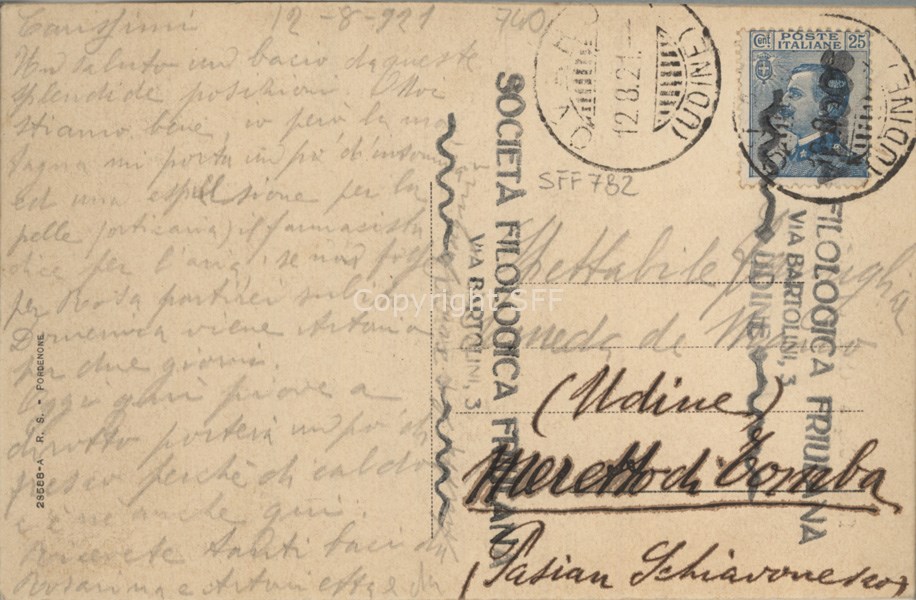 Carissimi 12-8-921
Un saluto un bacio da queste
splendide posizioni. Noi
stiamo bene, io però la mon
tagna mi porta un po' d'insonnia
ed una espulsione per la
pelle (orticaria) il farmacista
dice per l'aria, se non fosse
per Rosa partirei subito
Domenica viene
per due giorni.
Oggi qui piove a
dirotto porterà un po' di
fresco perchè di caldo
c'è ne anche qui.
Ricevete tanti baci da
Rosanna e
28588-A R. S. - PORDENONE
740
12.8.21.
(UDINE)
POSTE
ITALIANE
Cent. 25
(UDINE)
SFF 782
SOCIETÀ FILOLOGICA FRIULANA
VIA BARTOLINI, 3
FILOLOGICA FRIULANA
VIA BARTOLINI, 3
UDINE
Spettabile Famiglia
Someda de Marco
(Udine)
Mereto di Tomba
(Pasian Schiavonesco)
Copyright SFF